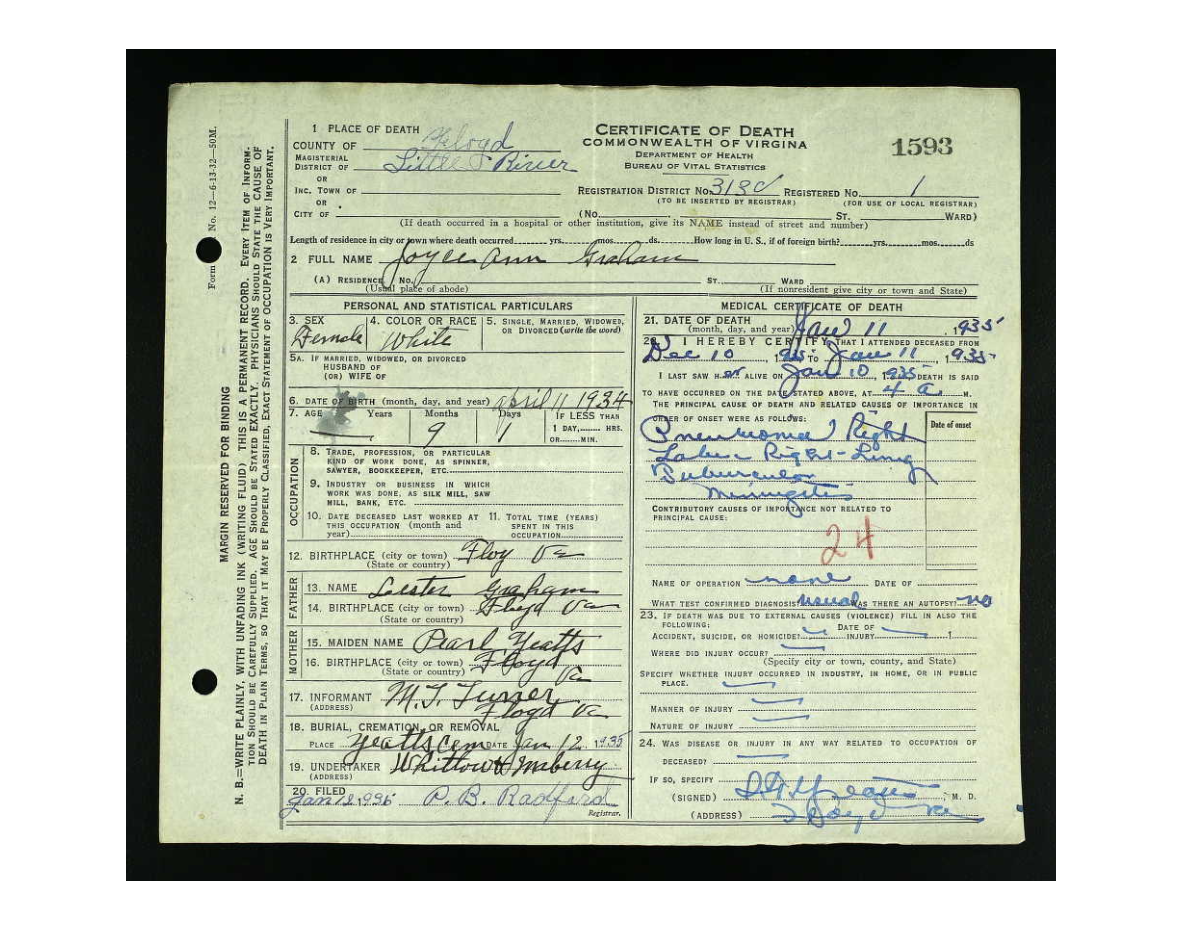 1 PLACE OF DEATH
COUNTY OF Floyd
MAGISTERIAL DISTRICT OF Little River
OR
INC. TOWN OF
OR
CITY OF
CERTIFICATE OF DEATH
COMMONWEALTH OF VIRGINA
DEPARTMENT OF HEALTH
BUREAU OF VITAL STATISTICS
1593
REGISTRATION DISTRICT NO. 318C REGISTERED NO. 1
(TO BE INSERTED BY REGISTRAR) (FOR USE OF LOCAL REGISTRAR)
(NO. ST. WARD)
(If death occurred in a hospital or other institution, give its NAME instead of street and number)
Length of residence in city or town where death occurred yrs. mos. ds. How long in U. S., if of foreign birth? yrs. mos. ds
2 FULL NAME Joyce Ann Graham
(A) RESIDENCE NO. ST. WARD
(Usual place of abode) (If nonresident give city or town and State)
PERSONAL AND STATISTICAL PARTICULARS
3. SEX Female
4. COLOR OR RACE White
5. SINGLE, MARRIED, WIDOWED, OR DIVORCED (write the word)
5A. IF MARRIED, WIDOWED, OR DIVORCED
HUSBAND OF
(OR) WIFE OF
6. DATE OF BIRTH (month, day, and year) April 11 1934
7. AGE Years Months Days IF LESS THAN
9 1 1 DAY, HRS.
OR MIN.
OCCUPATION
8. TRADE, PROFESSION, OR PARTICULAR
KIND OF WORK DONE, AS SPINNER,
SAWYER, BOOKKEEPER, ETC.
9. INDUSTRY OR BUSINESS IN WHICH
WORK WAS DONE, AS SILK MILL, SAW
MILL, BANK, ETC.
10. DATE DECEASED LAST WORKED AT THIS OCCUPATION (month and year)
11. TOTAL TIME (YEARS) SPENT IN THIS OCCUPATION
12. BIRTHPLACE (city or town) Floy Va
(State or country)
FATHER
13. NAME Lester Graham
14. BIRTHPLACE (city or town) Floyd Va
(State or country)
MOTHER
15. MAIDEN NAME Pearl Yeatts
16. BIRTHPLACE (city or town) Floyd
(State or country) Va
17. INFORMANT M.T. Turner
(ADDRESS) Floyd Va
18. BURIAL, CREMATION, OR REMOVAL
PLACE Yeatts Cem DATE Jan 12 1935
19. UNDERTAKER Whitlow & Maberry
(ADDRESS)
20. FILED
Jan 12 1935 P. B. Radford
Registrar.
MEDICAL CERTIFICATE OF DEATH
21. DATE OF DEATH
(month, day, and year) Jan 11 1935
22. I HEREBY CERTIFY, THAT I ATTENDED DECEASED FROM
Dec 10, 1935 TO Jan 11, 1935
I LAST SAW HER ALIVE ON Jan 10, 1935 DEATH IS SAID
TO HAVE OCCURRED ON THE DATE STATED ABOVE, AT 4 a M.
THE PRINCIPAL CAUSE OF DEATH AND RELATED CAUSES OF IMPORTANCE IN
ORDER OF ONSET WERE AS FOLLOWS: Date of onset
Pneumonia Right
Right Lung
Meningitis
CONTRIBUTORY CAUSES OF IMPORTANCE NOT RELATED TO
PRINCIPAL CAUSE:
24
NAME OF OPERATION none DATE OF
WHAT TEST CONFIRMED DIAGNOSIS? usual WAS THERE AN AUTOPSY? no
23. IF DEATH WAS DUE TO EXTERNAL CAUSES (VIOLENCE) FILL IN ALSO THE
FOLLOWING:
ACCIDENT, SUICIDE, OR HOMICIDE? DATE OF INJURY 1
WHERE DID INJURY OCCUR?
(Specify city or town, county, and State)
SPECIFY WHETHER INJURY OCCURRED IN INDUSTRY, IN HOME, OR IN PUBLIC
PLACE.
MANNER OF INJURY
NATURE OF INJURY
24. WAS DISEASE OR INJURY IN ANY WAY RELATED TO OCCUPATION OF
DECEASED?
IF SO, SPECIFY
(SIGNED) Yeatts, M. D.
(ADDRESS) Floyd Va
Form No. 12—6-13-32—50M.
MARGIN RESERVED FOR BINDING
N. B.=WRITE PLAINLY, WITH UNFADING INK (WRITING FLUID) THIS IS A PERMANENT RECORD. EVERY ITEM OF INFORM-
TION SHOULD BE CAREFULLY SUPPLIED. AGE SHOULD BE STATED EXACTLY. PHYSICIANS SHOULD STATE THE CAUSE OF
DEATH IN PLAIN TERMS, SO THAT IT MAY BE PROPERLY CLASSIFIED. EXACT STATEMENT OF OCCUPATION IS VERY IMPORTANT.